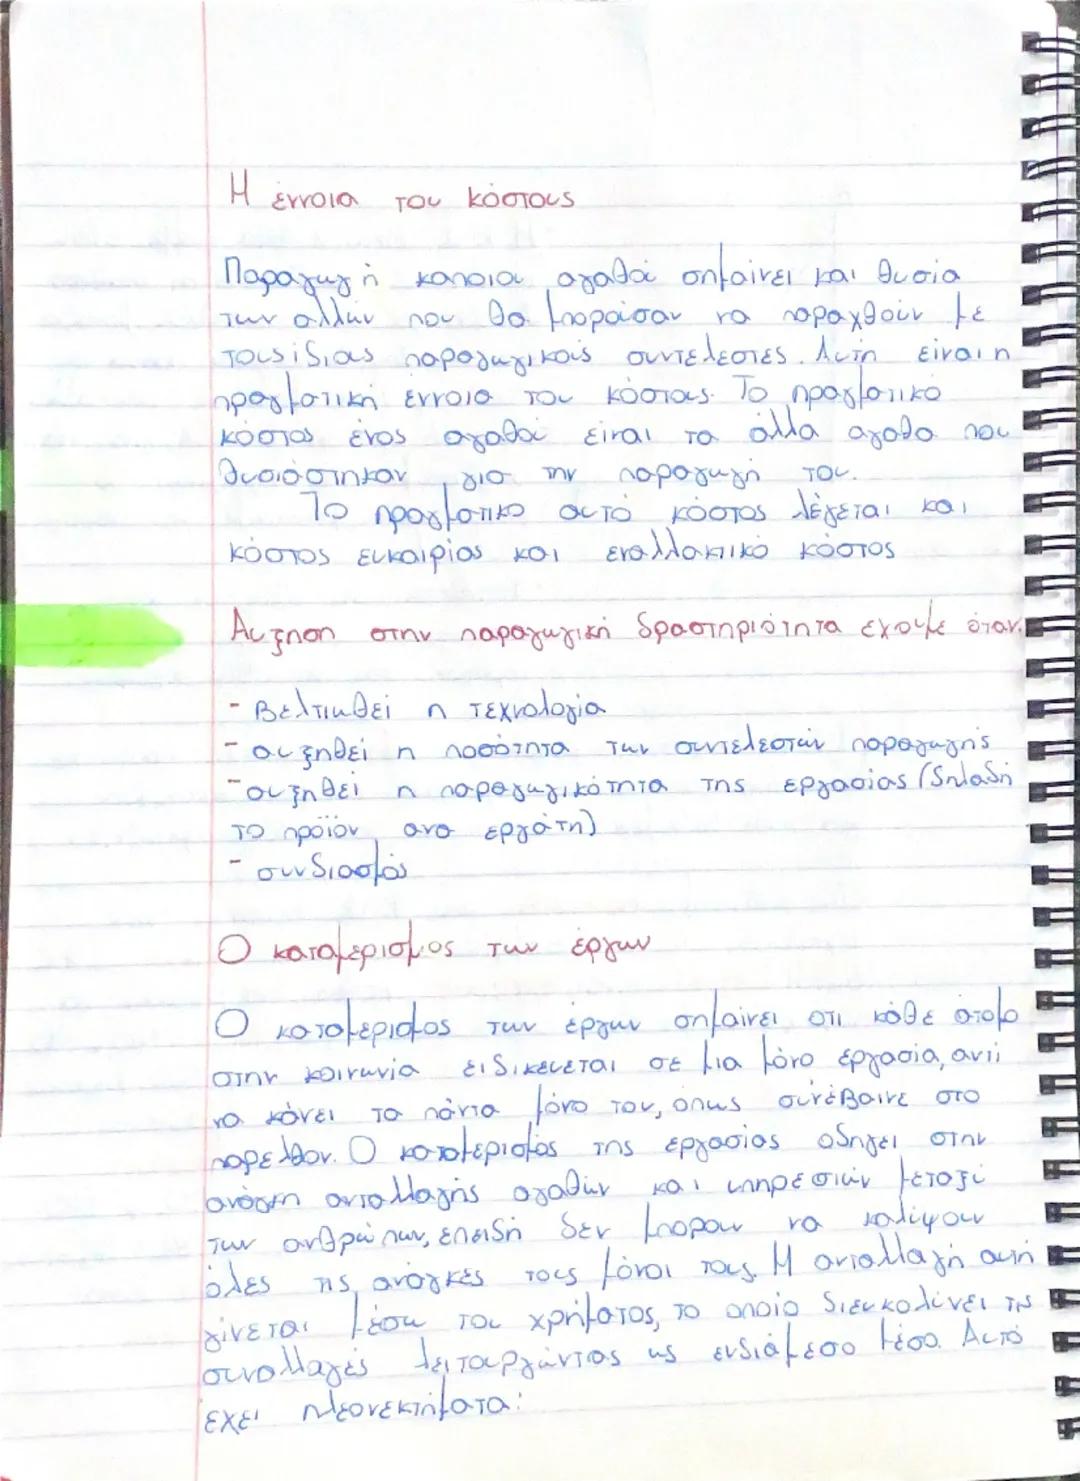 Η έννοια του κόστους
Παραγωγή κάποιου αγαθού σημαίνει και θυσία
των άλλων που θα μπορούσαν να παραχθούν με
τους ίδιους παραγωγικούς συντελεστές. Αυτή είναι η
πραγματική έννοια του κόστους. Το πραγματικό
κόστος ενός αγαθού είναι τα άλλα αγαθά που
θυσιάστηκαν για την παραγωγή του.
Το πραγματικό αυτό κόστος λέγεται και
κόστος ευκαιρίας και εναλλακτικό κόστος
Αύξηση στην παραγωγική δραστηριότητα έχουμε όταν:
- Βελτιωθεί η τεχνολογία
- αυξηθεί η ποσότητα των συντελεστών παραγωγής
- αυξηθεί η παραγωγικότητα της εργασίας (δηλαδή
το προϊόν ανα εργάτη)
- συνδιασμός
Ο καταμερισμος των έργων
Ο καταμερισμος των έργων σημαίνει οτι κάθε άτομο
στην κοινωνία ειδικεύεται σε μια μόνο εργασία, αντί
να κάνει τα πάντα μόνο του, όπως συνέβαινε στο
παρελθον. Ο καταμερισμός της εργασίας οδηγεί στην
ανάγκη ανταλλαγής αγαθών και υπηρεσιών μεταξύ
των ανθρώπων, επειδή δεν μπορουν να καλύψουν
όλες τις ανάγκες τους μόνοι τους. Η ανταλλαγή αυτή
γίνεται μέσω του χρήματος, το οποίο διευκολύνει τις
συναλλαγές λειτουργώντας ως ενδιάμεσο μέσο. Αυτό
έχει πλεονεκτήματα: